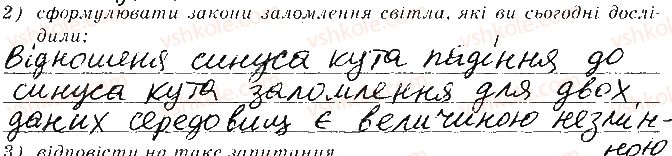 2) сформулювати закони заломлення світла, які ви сьогодні дослі-
дили:
Відношеня синуса кута падіння до
синуса кута заломлення для двох
даних середовищ є величиною незмін-
ною
3) відповісти на таке запитання